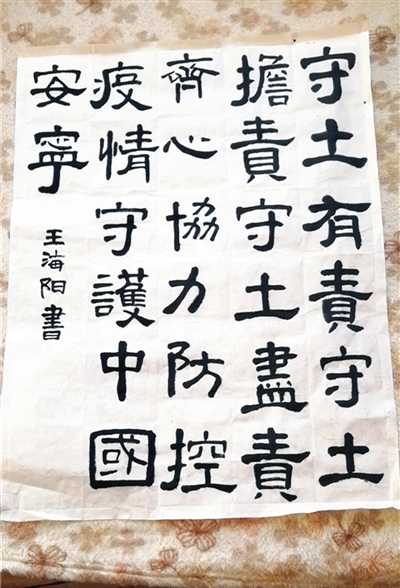 守土有責守土
擔責守土盡責
齊心協力防控
疫情守護中國
安寧
王海阳書